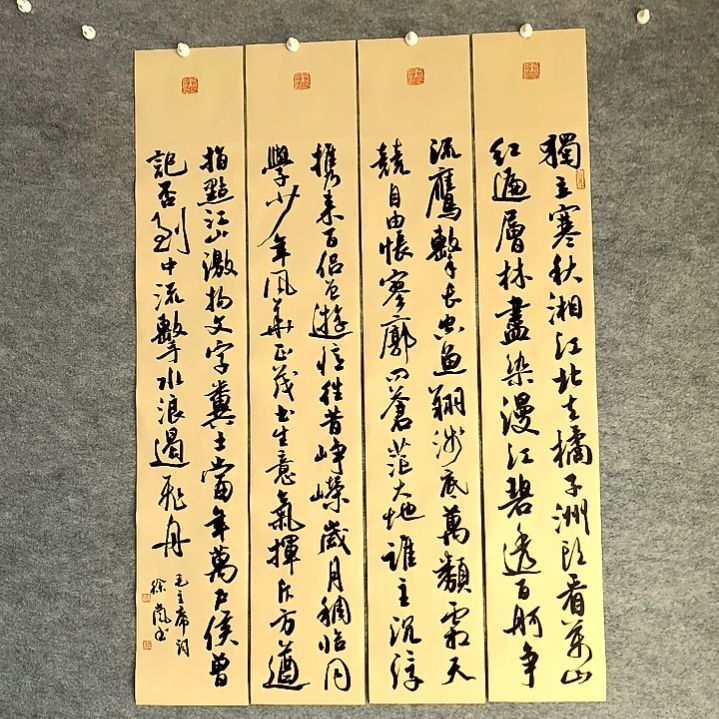 獨立寒秋湘江北去橘子洲頭看萬山
紅遍層林盡染漫江碧透百舸爭
流鷹擊長空魚翔淺底萬類霜天
競自由悵寥廓問蒼茫大地誰主沉浮
攜來百侶曾遊憶往昔崢嶸歲月稠恰同
學少年風華正茂書生意氣揮斥方遒
指點江山激揚文字糞土當年萬戶侯曾
記否到中流擊水浪遏飛舟
毛主席詞
徐嵐书